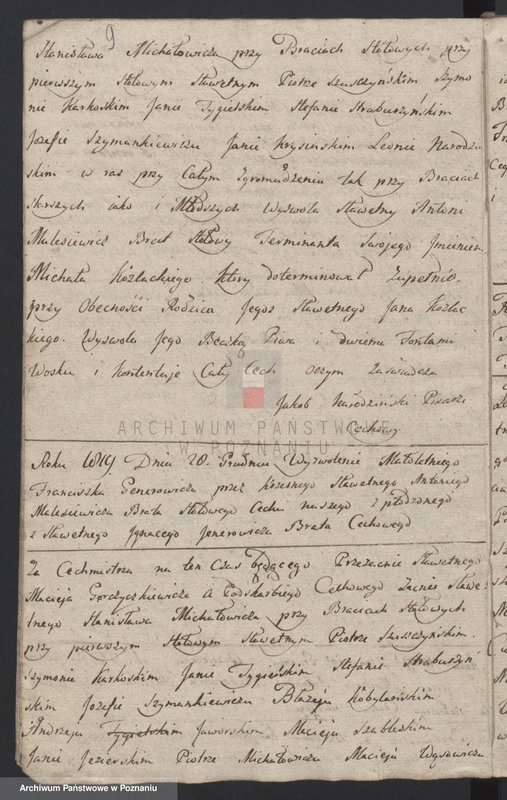 9
Stanisława Michałowicza przy Braciach Stołowych przy
pierwszym Stołowym Sławetnym Piotrze Szuszczyńskim Szymo
nie Karkoskim Janie Tygielskim Stefanie Strabuszyńskim
Jozefie Szymankiewiczu Janie Krysinskim Leonie Narodzi
skim w raz przy Całym Zgromadzeniu tak przy Braciach
Starszych iako i Młodszych Wyzwola Sławetny Antoni
Malesiewicz Brat Stołowy Terminanta Swojego Imieniem
Michała Kozlackiego Ktory doterminował Zupełnie
przy Obecności Rodzica Jegoż Sławetnego Jana Kozlac
kiego. Wyzwala Jego Beczką Piwa i dwiema Fontami
Wosku i Kontentuje Cały Cech Oczym Zaświadcza
Jakob Narodzinski Pisarz
Cechowy
Roku 1819 Dnia 28. Grudnia Wyzwolenie Małoletniego
Franciszka Generowicza przez Sławetnego Antoniego
Malesiewicza Brata Stołowego Cechu naszego z płodzonego
z Sławetnego Ignacego Jenerowicza Brata Cechowego
Za Cechmistrza na ten Czas będącego Przezacnie Sławetnego
Macieja Gorczyszkiewicza A Podskarbiego Cechowego Zacnie Sławe
tnego Stanisława Michałowicza przy Braciach Stołowych
przy pierwszym Stołowym Sławetnym Piotrze Szuszczyńskim.
Szymonie Karkoskim Janie Tygielskim Stefanie Strabuszyń
skim Jozefie Szymankiewiczu Błażeju Kobylańskim
Andrzeju Jaworskim Macieju Szableskim
Janie Jezierskim Piotrze Michałowiczu Macieju Wąsowiczu
ARCHIWUM PAŃSTWOWE
W POZNANIU
Archiwum Państwowe w Poznaniu